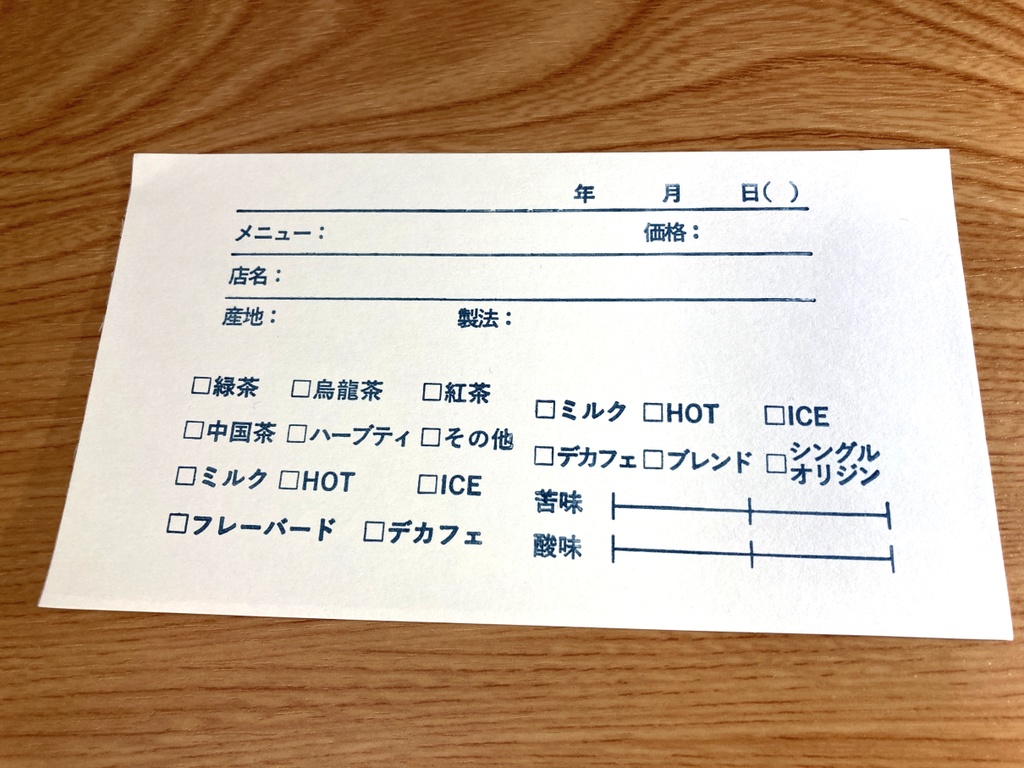 年 月 日( )
メニュー： 価格：
店名：
産地： 製法：
□緑茶 □烏龍茶 □紅茶
□中国茶 □ハーブティ □その他
□ミルク □HOT □ICE
□フレーバード □デカフェ
□ミルク □HOT □ICE
□デカフェ □ブレンド □シングル
オリジン
苦味
酸味